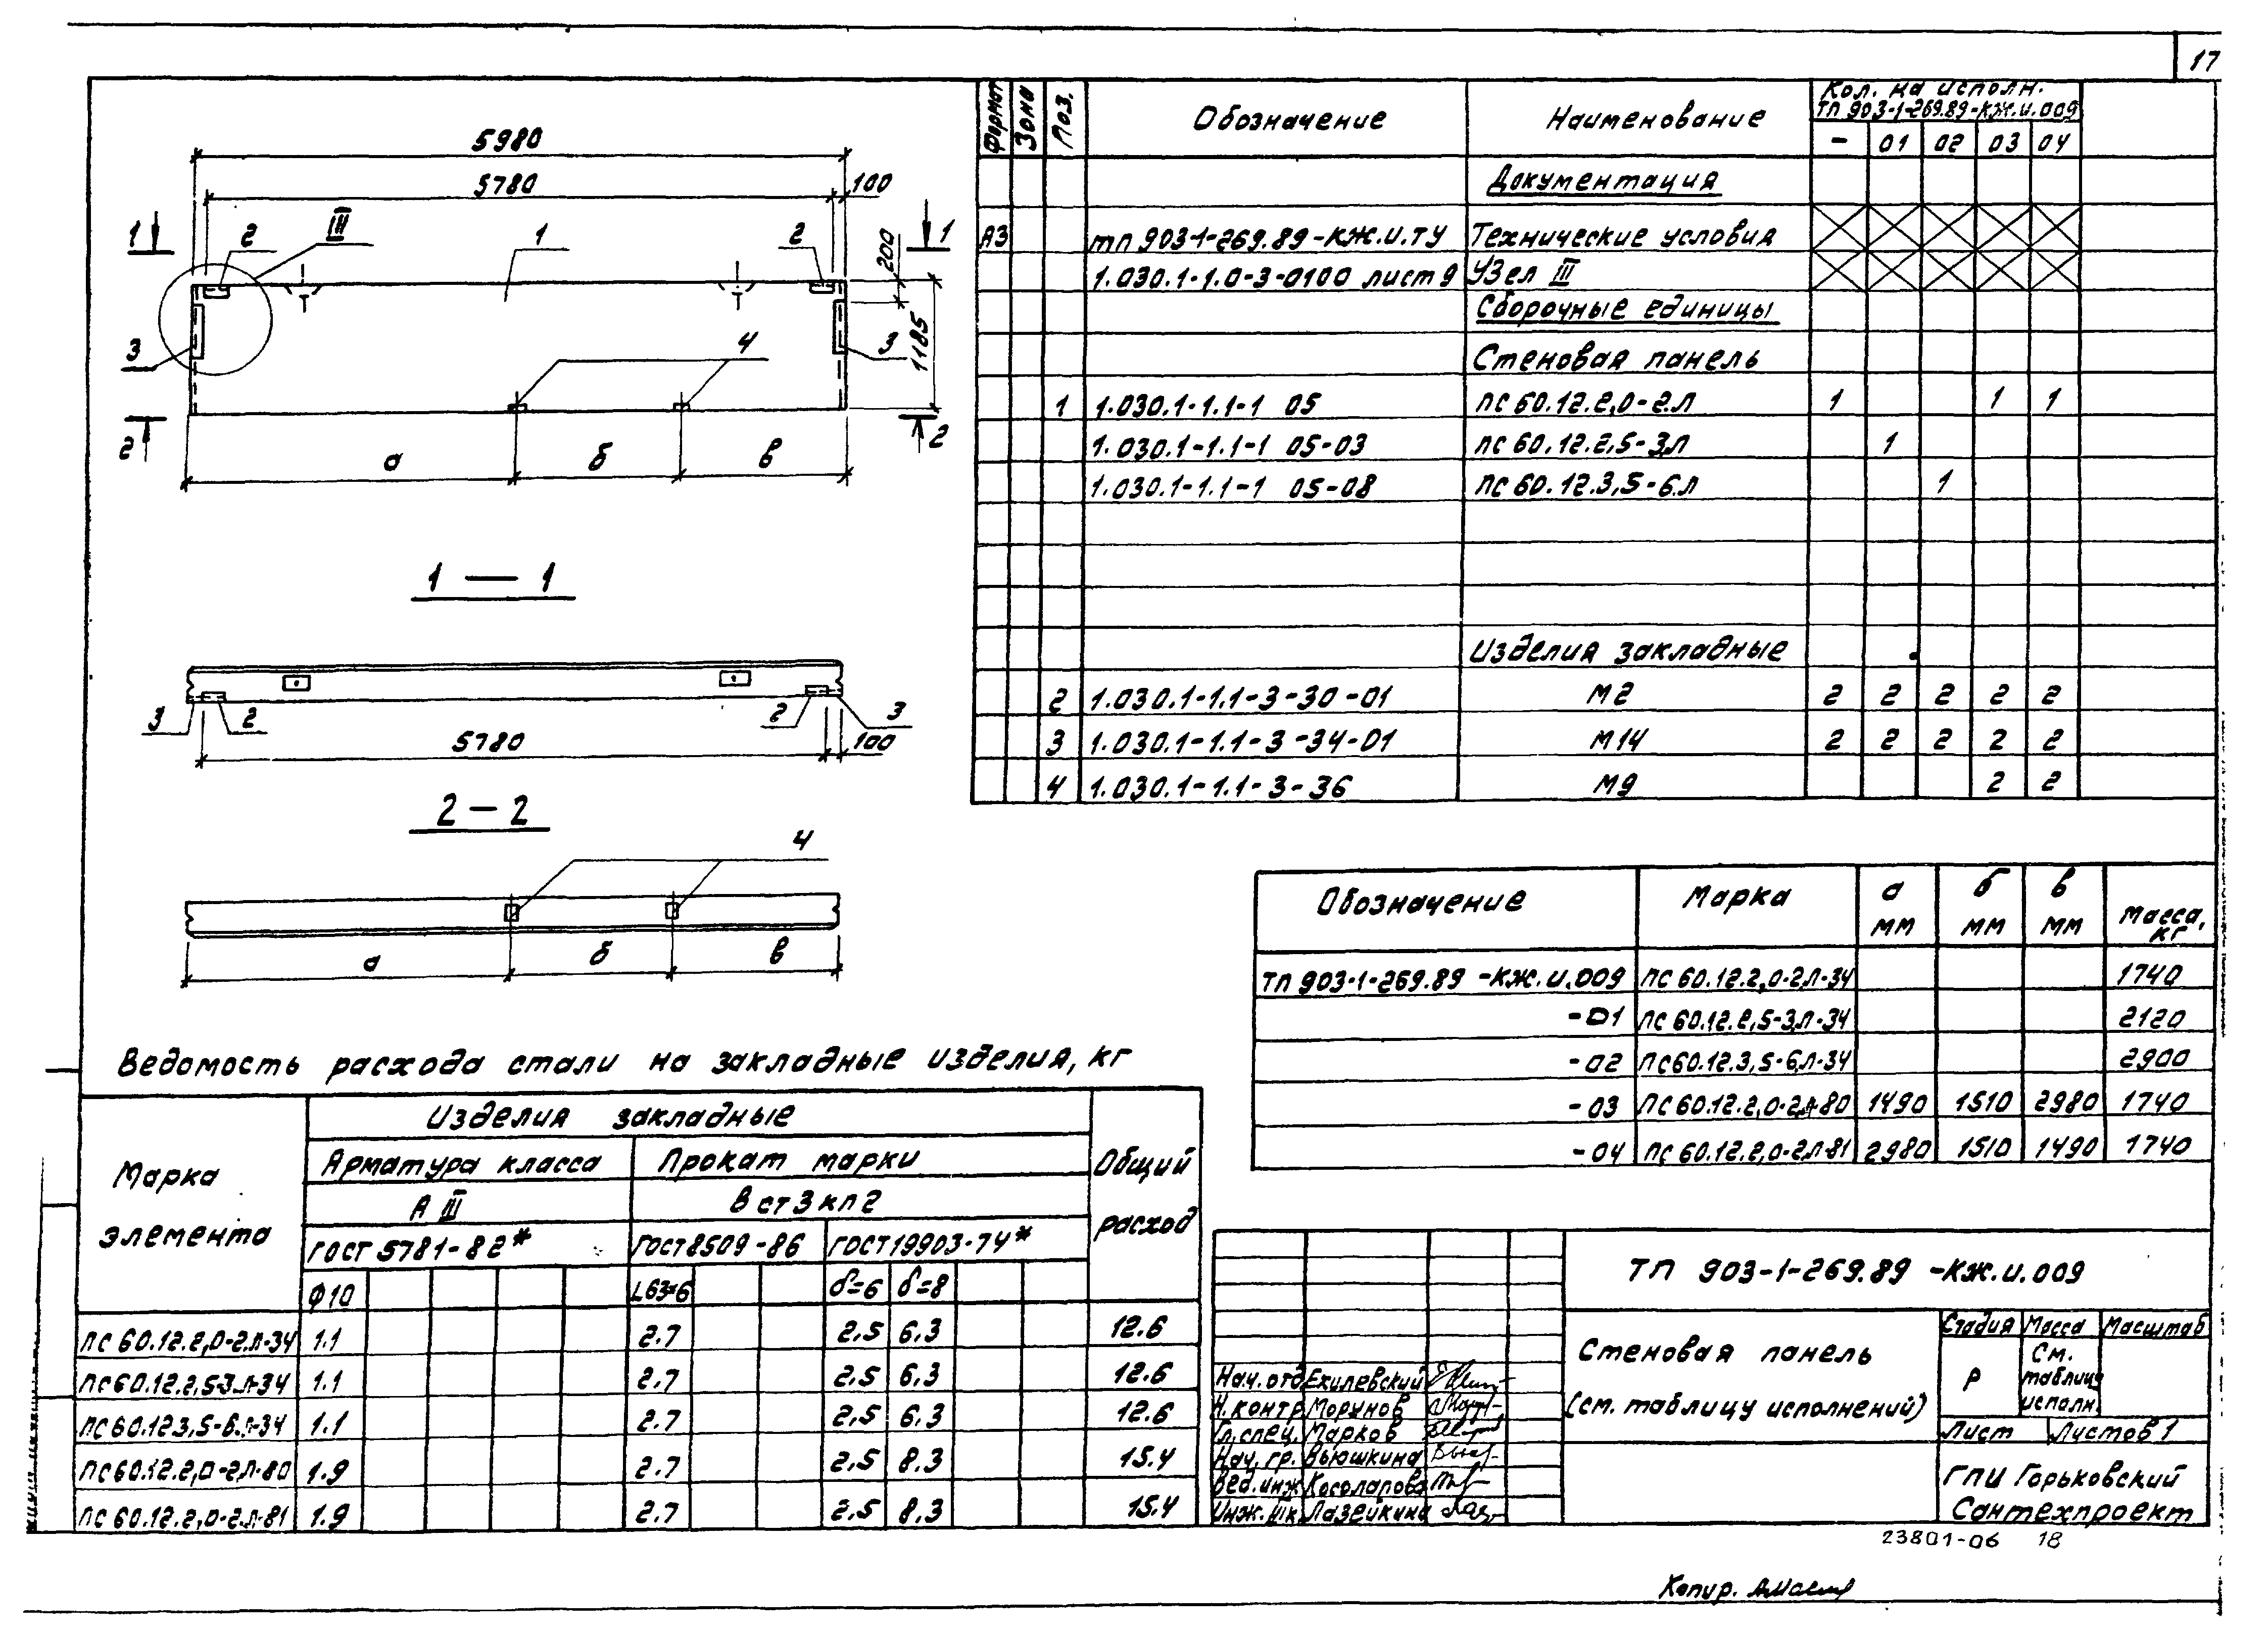 17
5980
5780
100
III
1
2
1
2
1
200
3
4
3
1185
2
а
б
в
2
1 — 1
3
2
2
3
5780
100
2 — 2
4
а
б
в
Формат
Зона
Поз.
Обозначение
Наименование
Кол. на исполн.
ТП 903-1-269.89-КЖ.И.009
- 01 02 03 04
Документация
А3 тп 903-1-269.89-КЖ.И.ТУ Технические условия
1.030.1-1.0-3-0100 лист 9 Узел III
Сборочные единицы
Стеновая панель
1 1.030.1-1.1-1 05 ПС 60.12.2,0-2.Л 1 1 1
1.030.1-1.1-1 05-03 ПС 60.12.2,5-3Л 1
1.030.1-1.1-1 05-08 ПС 60.12.3,5-6.Л 1
Изделия закладные
2 1.030.1-1.1-3-30-01 М2 2 2 2 2 2
3 1.030.1-1.1-3-34-01 М14 2 2 2 2 2
4 1.030.1-1.1-3-36 М9 2 2
Обозначение Марка а мм б мм в мм Масса, кг
ТП 903-1-269.89-КЖ.И.009 ПС 60.12.2,0-2Л-34 1740
-01 ПС 60.12.2,5-3Л-34 2120
-02 ПС 60.12.3,5-6Л-34 2900
-03 ПС 60.12.2,0-2Л-80 1490 1510 2980 1740
-04 ПС 60.12.2,0-2Л-81 2980 1510 1490 1740
Ведомость расхода стали на закладные изделия, кг
Марка элемента
Изделия закладные
Общий расход
Арматура класса
Прокат марки
А III
В ст 3 кп 2
ГОСТ 5781-82*
ГОСТ 8509-86
ГОСТ 19903-74*
Ф10 L63×6 δ=6 δ=8
ПС 60.12.2,0-2.Л-34 1.1 2.7 2,5 6.3 12.6
ПС 60.12.2,5-3.Л-34 1.1 2.7 2,5 6.3 12.6
ПС 60.12.3,5-6.Л-34 1.1 2.7 2,5 6.3 12.6
ПС 60.12.2,0-2Л-80 1.9 2.7 2,5 8.3 15.4
ПС 60.12.2,0-2.Л-81 1.9 2.7 2,5 8.3 15.4
ТП 903-1-269.89-КЖ.И.009
Стеновая панель
(см. таблицу исполнений)
Стадия Масса Масштаб
Р
См.
таблицу
исполн.
Лист Листов 1
ГПИ Горьковский
Сантехпроект
Нач. отд Ехилевский
Н. контр Морунов
Гл. спец. Марков
Нач. гр. Вьюшкина
Вед. инж Косолапова
Инж. IIIк. Лазейкина
23801-06 18
Копир.